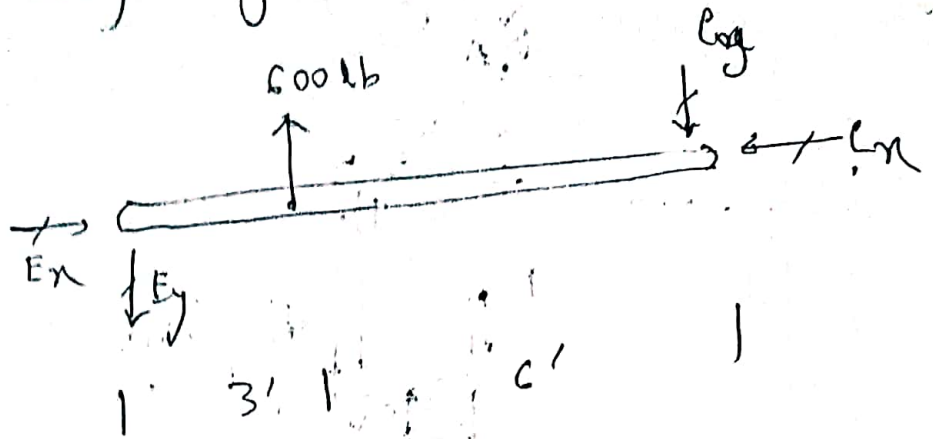 600 lb
Cy
Cx
Ex
Ey
3' 6'